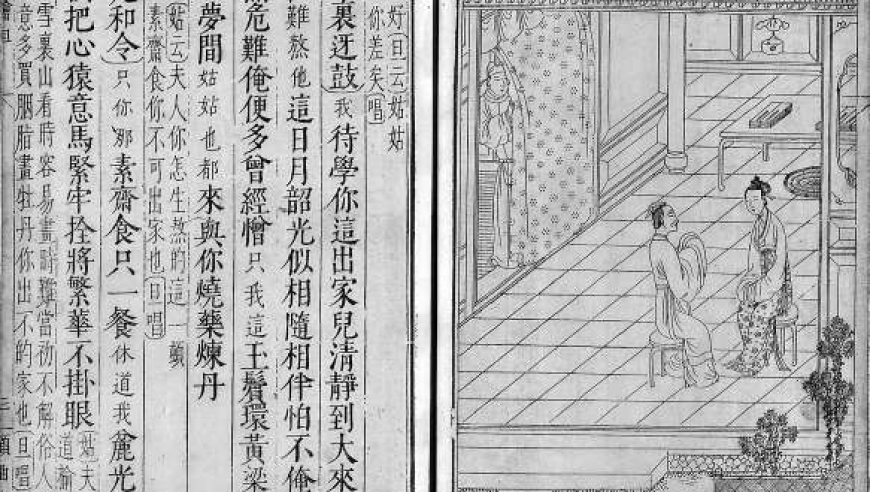 好(旦云)姑姑
你差矣(唱)
裏迓鼓我待學你這出家兒清靜到大來
難熬他這日月韶光似相隨相伴怕不俺
危難俺便多曾經慣只我這玉鬟環黃粱
夢間姑姑也都來與你燒藥煉丹
(姑云)夫人你怎生熬的這一頓
素齋食你不可出家也(旦唱)
和令只你那素齋食只一餐休道我麄光
把心猿意馬緊牢拴將繁華不掛眼
姑夫
道論
雪裏山看時容易畫時難當初不解俗人
意多買胭脂畫牡丹你出不的家也旦唱